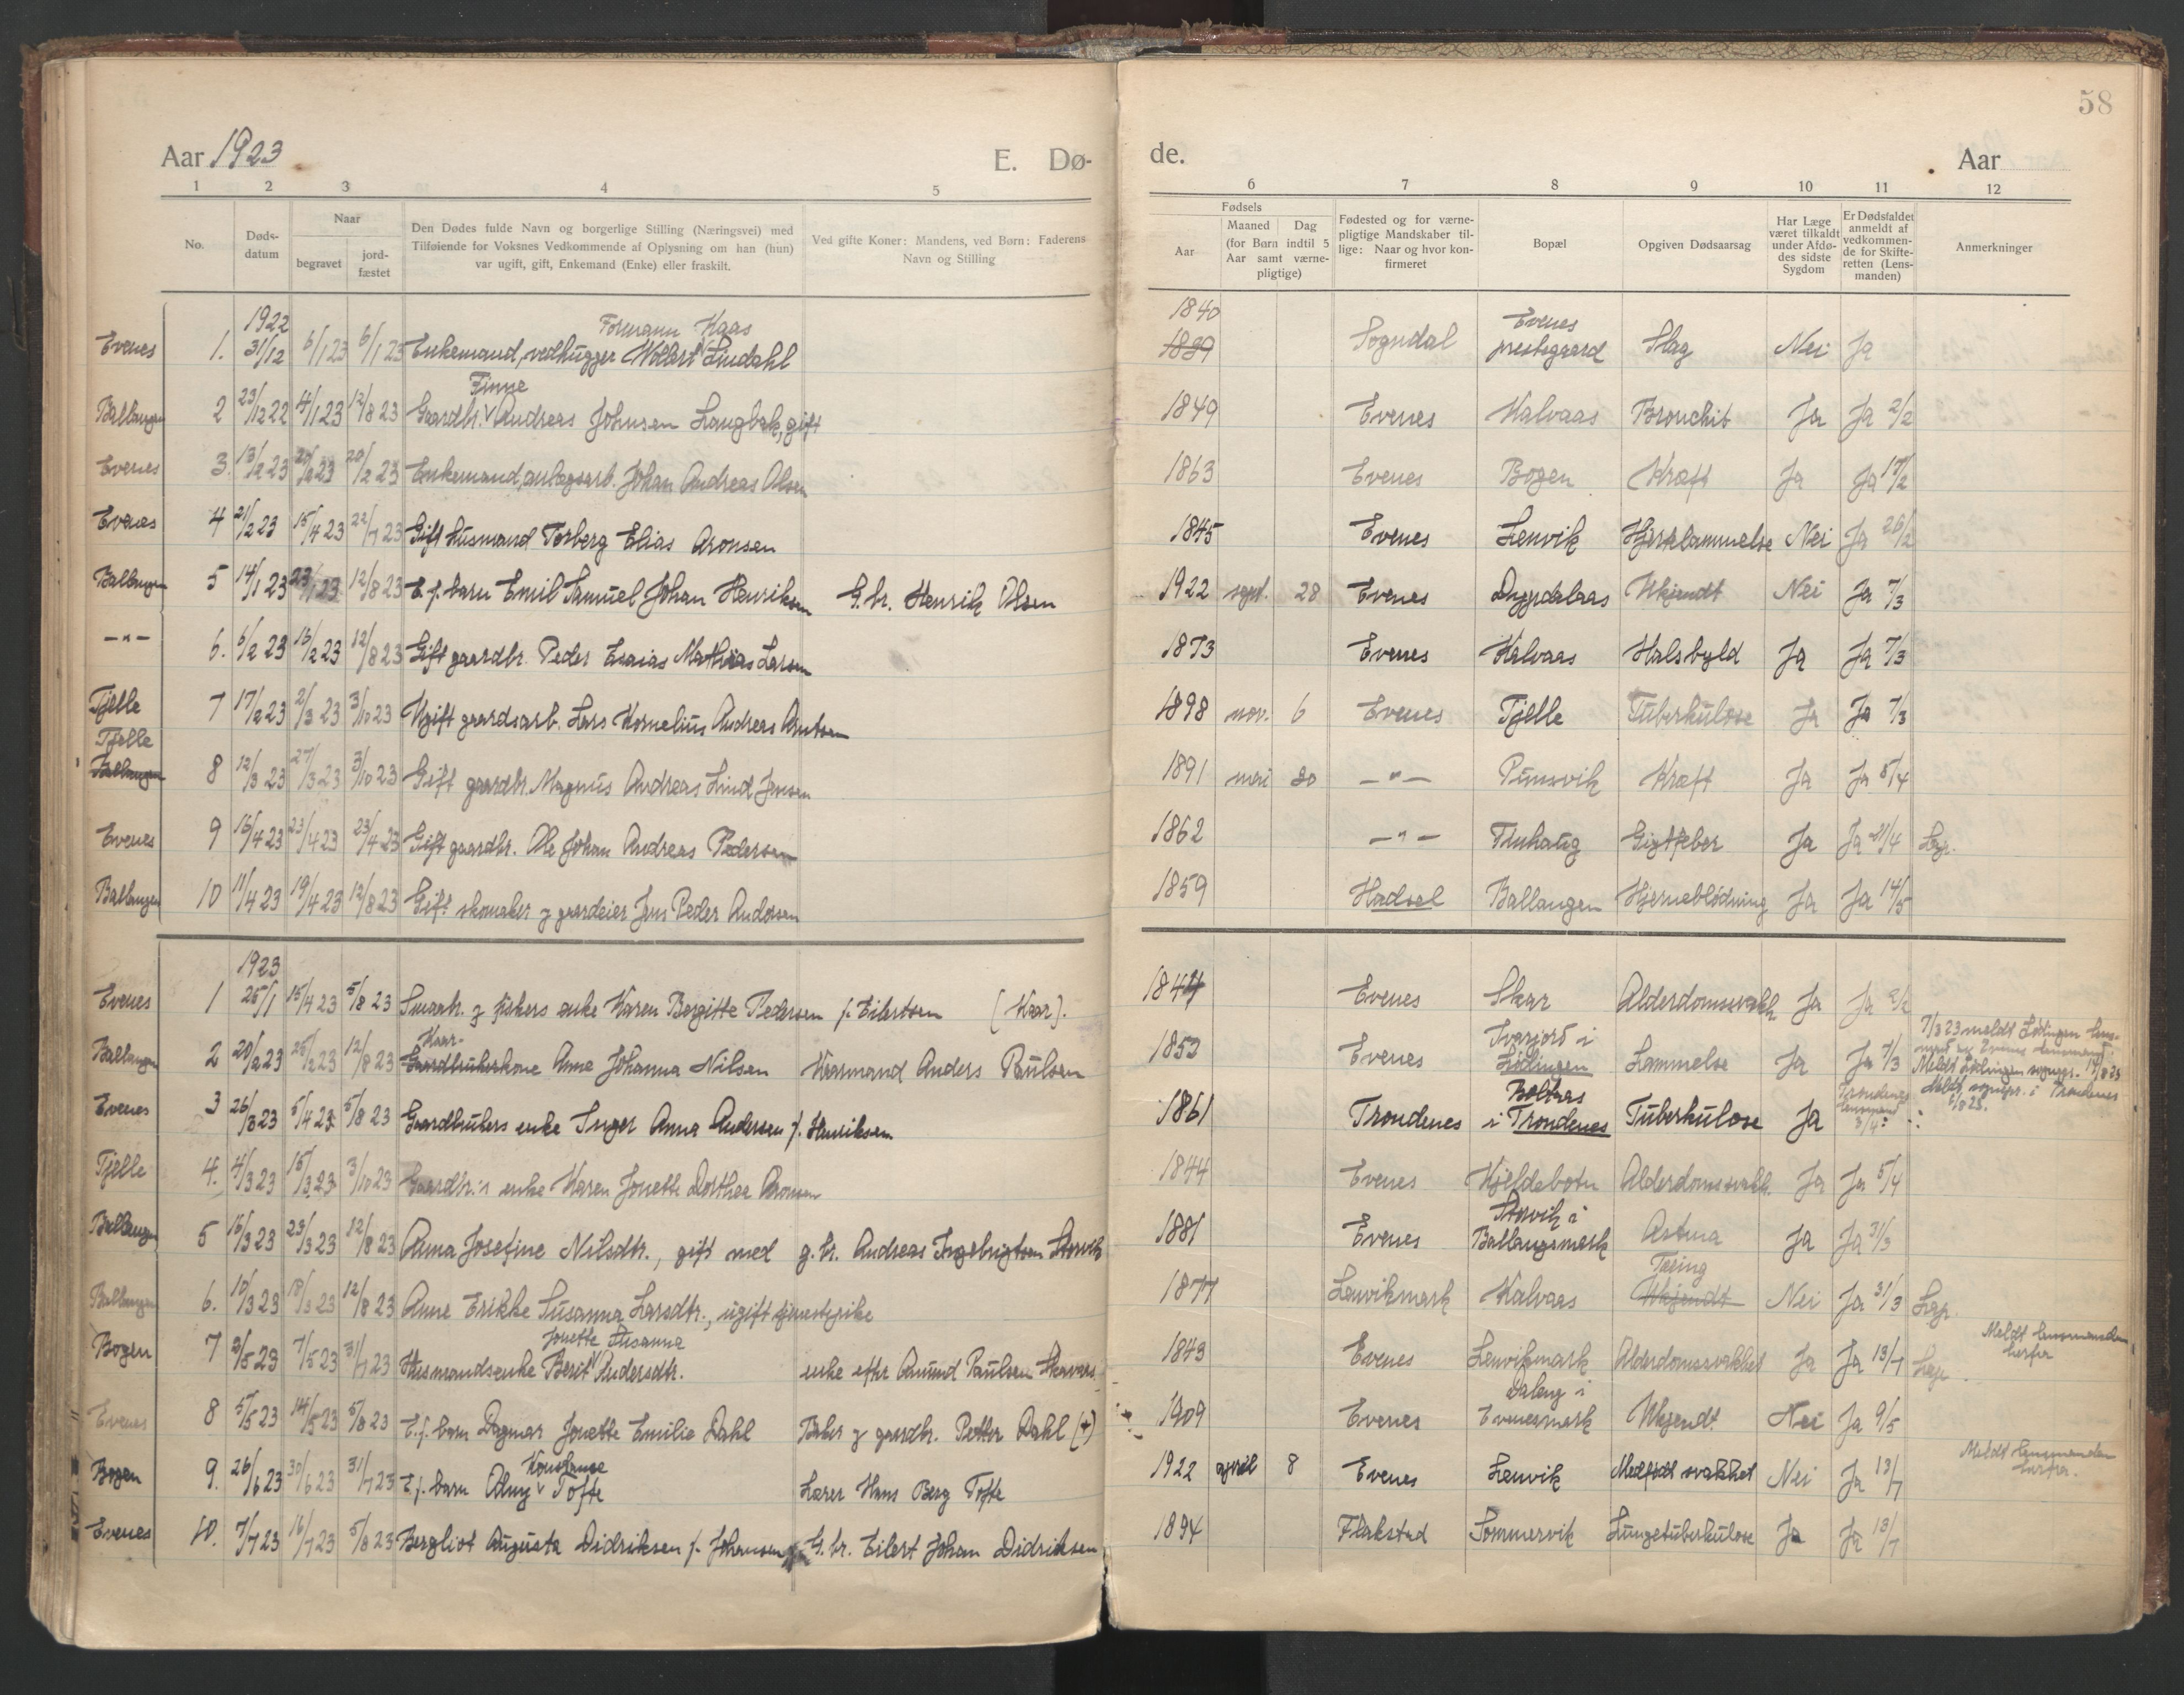 58
Aar 1923 E. Dø- de. Aar
1 2 3 4 5 6 7 8 9 10 11 12
No. Døds-datum Naar begravet jord-fæstet
Den Dødes fulde Navn og borgerlige Stilling (Næringsvei) med
Tilføiende for Voksnes Vedkommende af Oplysning om han (hun)
var ugift, gift, Enkemand (Enke) eller fraskilt.
Ved gifte Koner: Mandens, ved Børn: Faderens
Navn og Stilling
Fødsels Aar Maaned Dag (for Børn indtil 5 Aar samt værne-pligtige)
Fødested og for værne-pligtige Mandskaber til-lige: Naar og hvor kon-firmeret
Bopæl
Opgiven Dødsaarsag
Har Læge været tilkaldt under Afdø-des sidste Sygdom
Er Dødsfaldet anmeldt af vedkommen-de for Skifte-retten (Lens-manden)
Anmerkninger
Evenes 1. 1922 31/12 6/1 23 6/1 23 Enkemand, vedhugger Wollert Formann Kaas Lindahl 1840 1839 Sogndal Evenes prestegaard Slag Nei Ja
Ballangen 2 23/12 22 4/1 23 12/8 23 Gaardbr. Finne Andreas Johnsen Langbak, gift 1849 Evenes Kalvaas Bronchit Ja Ja 2/2
Evenes 3. 13/2 23 20/2 23 20/2 23 Enkemand, anlægsarb. Johan Andreas Olsen 1863 Evenes Bogen Kræft Ja Ja 17/2
Evenes 4 21/2 23 15/4 23 22/7 23 Gift husmand Torberg Elias Aronsen 1845 Evenes Lenvik Hjertelammelse Nei Ja 26/2
Ballangen 5 14/1 23 23/1 23 12/8 23 E.f. barn Emil Samuel Johan Henriksen G.br. Henrik Olsen 1922 sept. 28 Evenes Dypdalaas Ukjendt Nei Ja 7/3
—"— 6. 6/2 23 16/2 23 12/8 23 Gift gaardbr. Peder Esaias Mathias Larsen 1873 Evenes Kalvaas Halsbyld Ja Ja 7/3
Tjelle 7 17/2 23 2/3 23 3/10 23 Ugift gaardsarb. Lars Kornelius Andreas Arntsen 1898 nov. 6 Evenes Tjelle Tuberkulose Ja Ja 7/3
Tjelle Ballangen 8 12/3 23 27/3 23 3/10 23 Gift gaardbr. Magnus Andreas Lind Jensen 1891 mai 20 —"— Pumsvik Kræft Ja Ja 5/4
Evenes 9 16/4 23 23/4 23 23/4 23 Gift gaardbr. Ole Johan Andreas Pedersen 1862 —"— Tinhaug Gigtfeber Ja Ja 21/4 Lap.
Ballangen 10 11/4 23 19/4 23 12/8 23 Gift skomaker og gaardeier Jens Peder Andersen 1859 Hadsel Ballangen Hjerneblødning Ja Ja 14/5
Evenes 1 1923 25/1 15/4 23 5/8 23 Smaabr. og fiskers enke Karen Bergitte Pedersen f. Eilertsen (Kaar). 1844 Evenes Skar Alderdomssvakh. Ja Ja
Ballangen 2 20/2 23 25/2 23 12/8 23 Kaar- Gaardbrukerkone Anne Johanna Nilsen Kaarmand Anders Paulsen 1853 Evenes Ivarjord i Lødingen Lammelse Ja Ja 7/3 7/3 23 meldt Lødingen
Meldt Lødingen sognepr.
Evenes 3 26/3 23 5/4 23 5/8 23 Gaardbrukers enke Inger Anna Andersen f. Henriksen 1861 Trondenes Boltaas i Trondenes Tuberkulose Ja Trondenes lensmand 3/4 Meldt sognepr. i Trondenes
Tjelle 4. 4/3 23 15/3 23 3/10 23 Gaardbr.s enke Karen Jonette Dorthea Aronsen 1844 Evenes Kjeldebotn Alderdomssvakh. Ja Ja 5/4
Ballangen 5 16/3 23 23/3 23 12/8 23 Anna Josefine Nilsdtr., gift med g.br. Andreas Ingebrigtsen Storvik 1881 Evenes Storvik i Ballangsmark Astma Ja Ja 31/3
Ballangen 6. 10/3 23 18/3 23 12/8 23 Anne Erikke Susanna Larsdtr., ugift tjenestepike 1877 Lenvikmark Kalvaas Tæring Ukjendt Nei Ja 31/3 Lap.
Bogen 7 3/5 23 7/5 23 31/7 23 Husmandsenke Berit Jonette Susanna Andersdtr. enke efter Amund Paulsen 1843 Evenes Lenvikmark Alderdomssvakhet Ja Ja 13/7 Lap. Meldt lensmanden herfra
Evenes 8 5/5 23 14/5 23 5/8 23 E.f. barn Dagmar Jonette Emilie Dahl Baker og gaardbr. Petter Dahl (+) 1909 Evenes Dalang i Evenesmark Ukjendt Nei Ja 9/5
Bogen 9. 26/6 23 30/6 23 31/7 23 E.f. barn Alny Konstanse Tofte Lærer Hans Berg Tofte 1922 april 8 Evenes Lenvik Medfødt svakhet Nei Ja 13/7 Meldt lensmanden herfra.
Evenes 10. 7/7 23 16/7 23 5/8 23 Bergliot Augusta Didriksen f. Johansen G.br. Eilert Johan Didriksen 1894 Flakstad Sommervik Lungetuberkulose Ja Ja 13/7